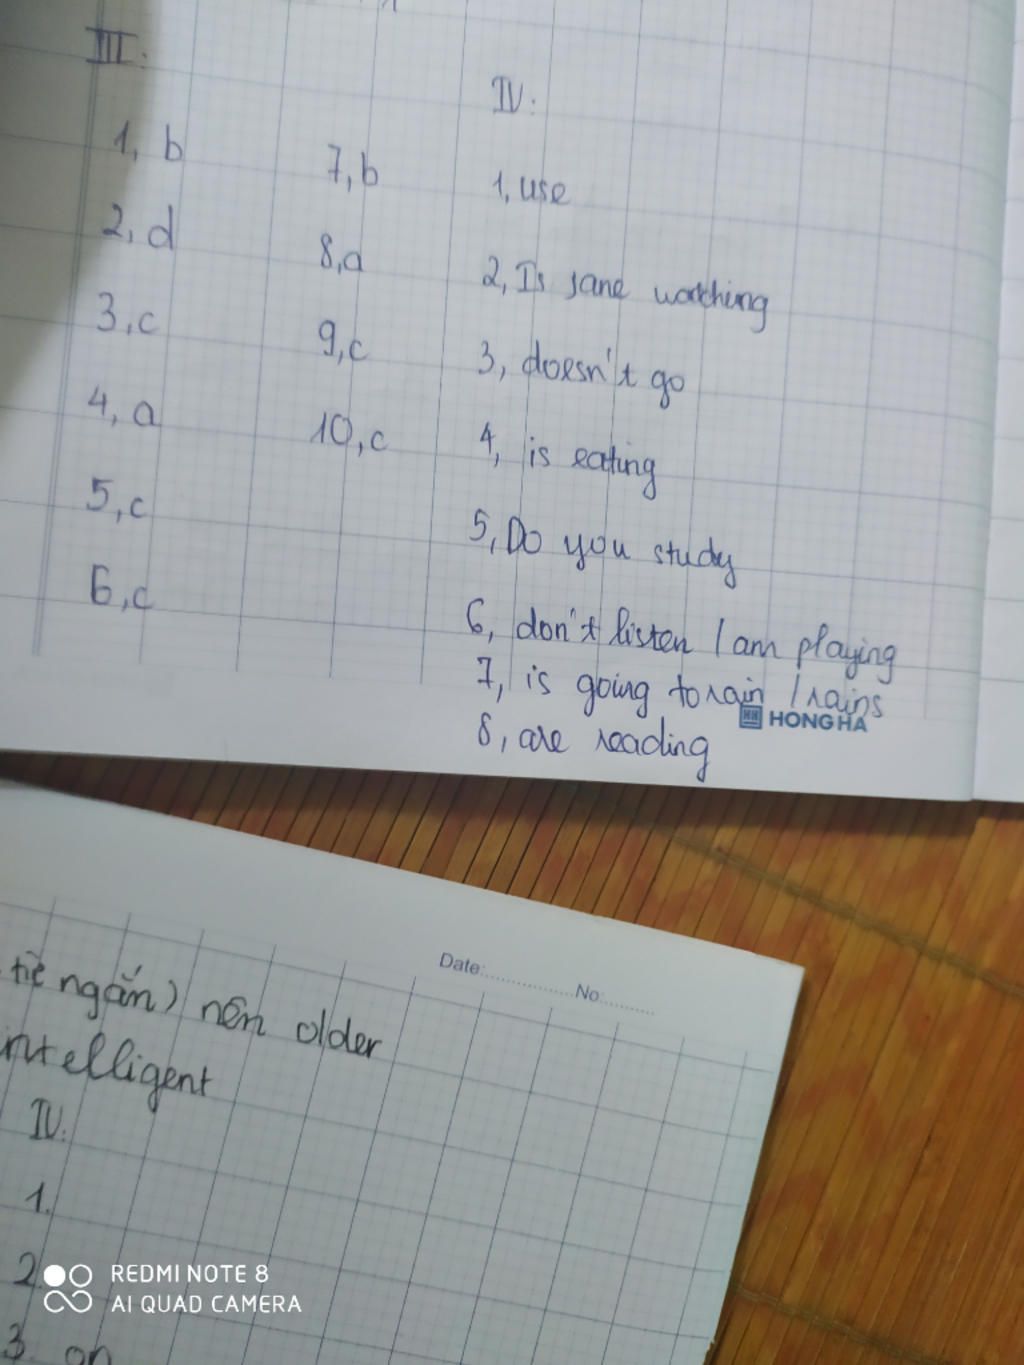 III.
1, b
2, d
3, c
4, a
5, c
6, c
7, b
8, a
9, c
10, c
IV:
1, use
2, Is Jane watching
3, doesn't go
4, is eating
5, Do you study
6, don't listen / am playing
7, is going to rain / rains
8, are reading
HONG HA
Date:.................No:.........
ngắn) nên older
intelligent
IV.
1.
2
3 on
REDMI NOTE 8
AI QUAD CAMERA